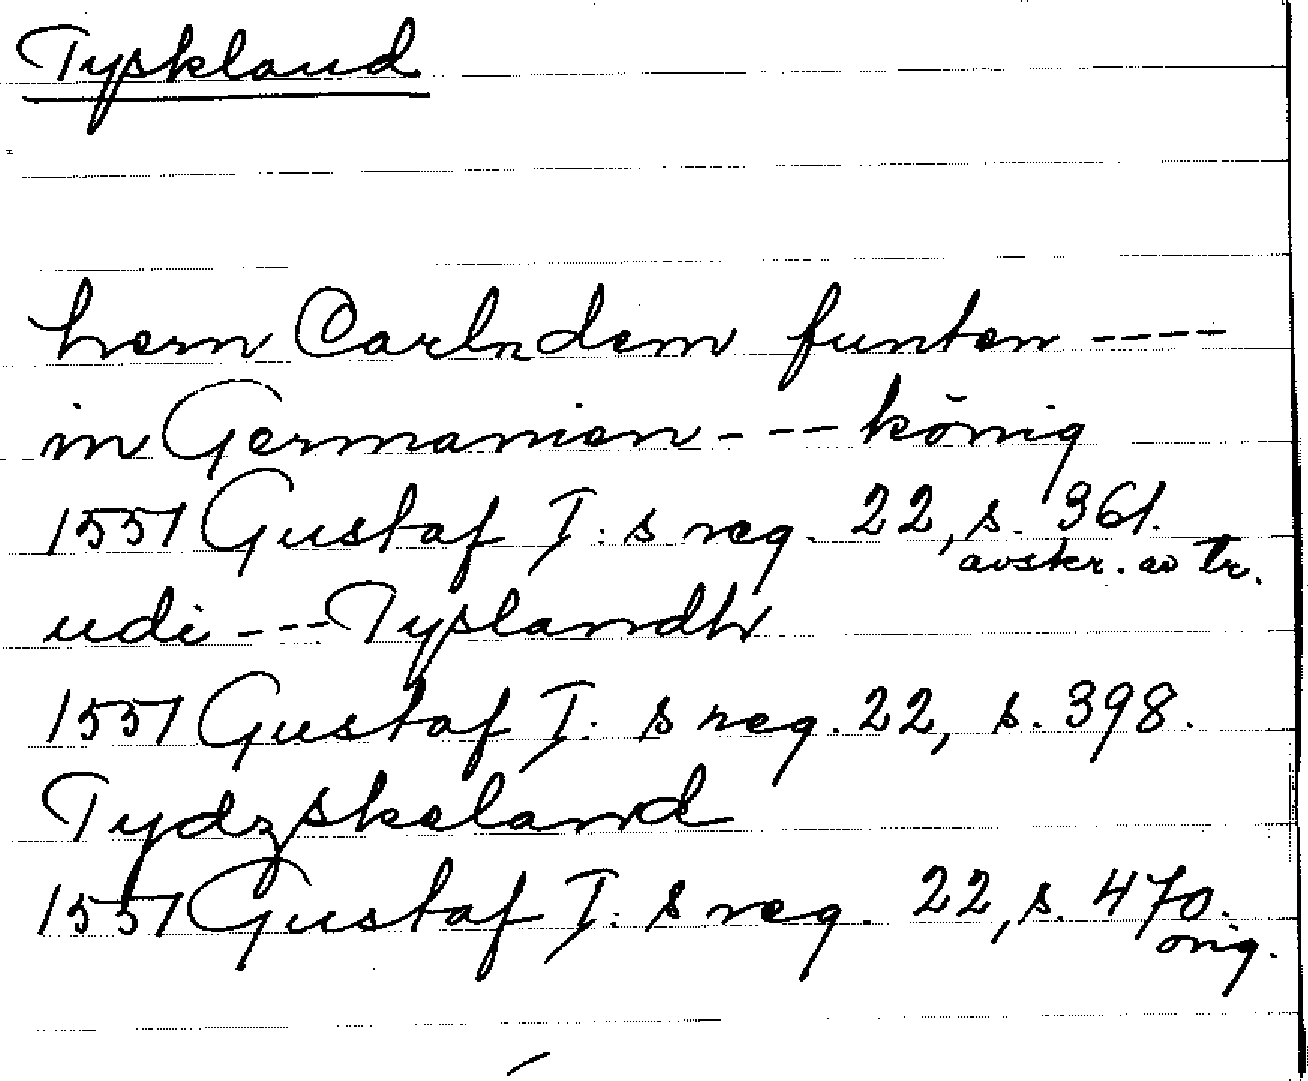 Tyskland
hern Carln dem funten ----
in Germanien --- könig
1551 Gustaf I:s reg. 22, s. 361.
avskr. av tr.
udi --- Tyslandh
1551 Gustaf I:s reg. 22, s. 398.
Tydzskeland
1551 Gustaf I:s reg. 22, s. 470.
orig.